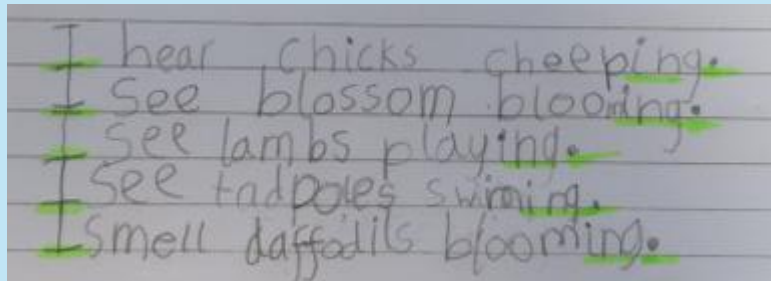 I hear chicks cheeping.
I see blossom blooming.
I see lambs playing.
I see tadpoles swiming.
I smell daffodils blooming.